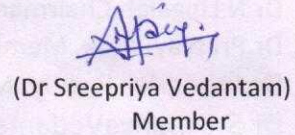 (Dr Sreepriya Vedantam)
Member